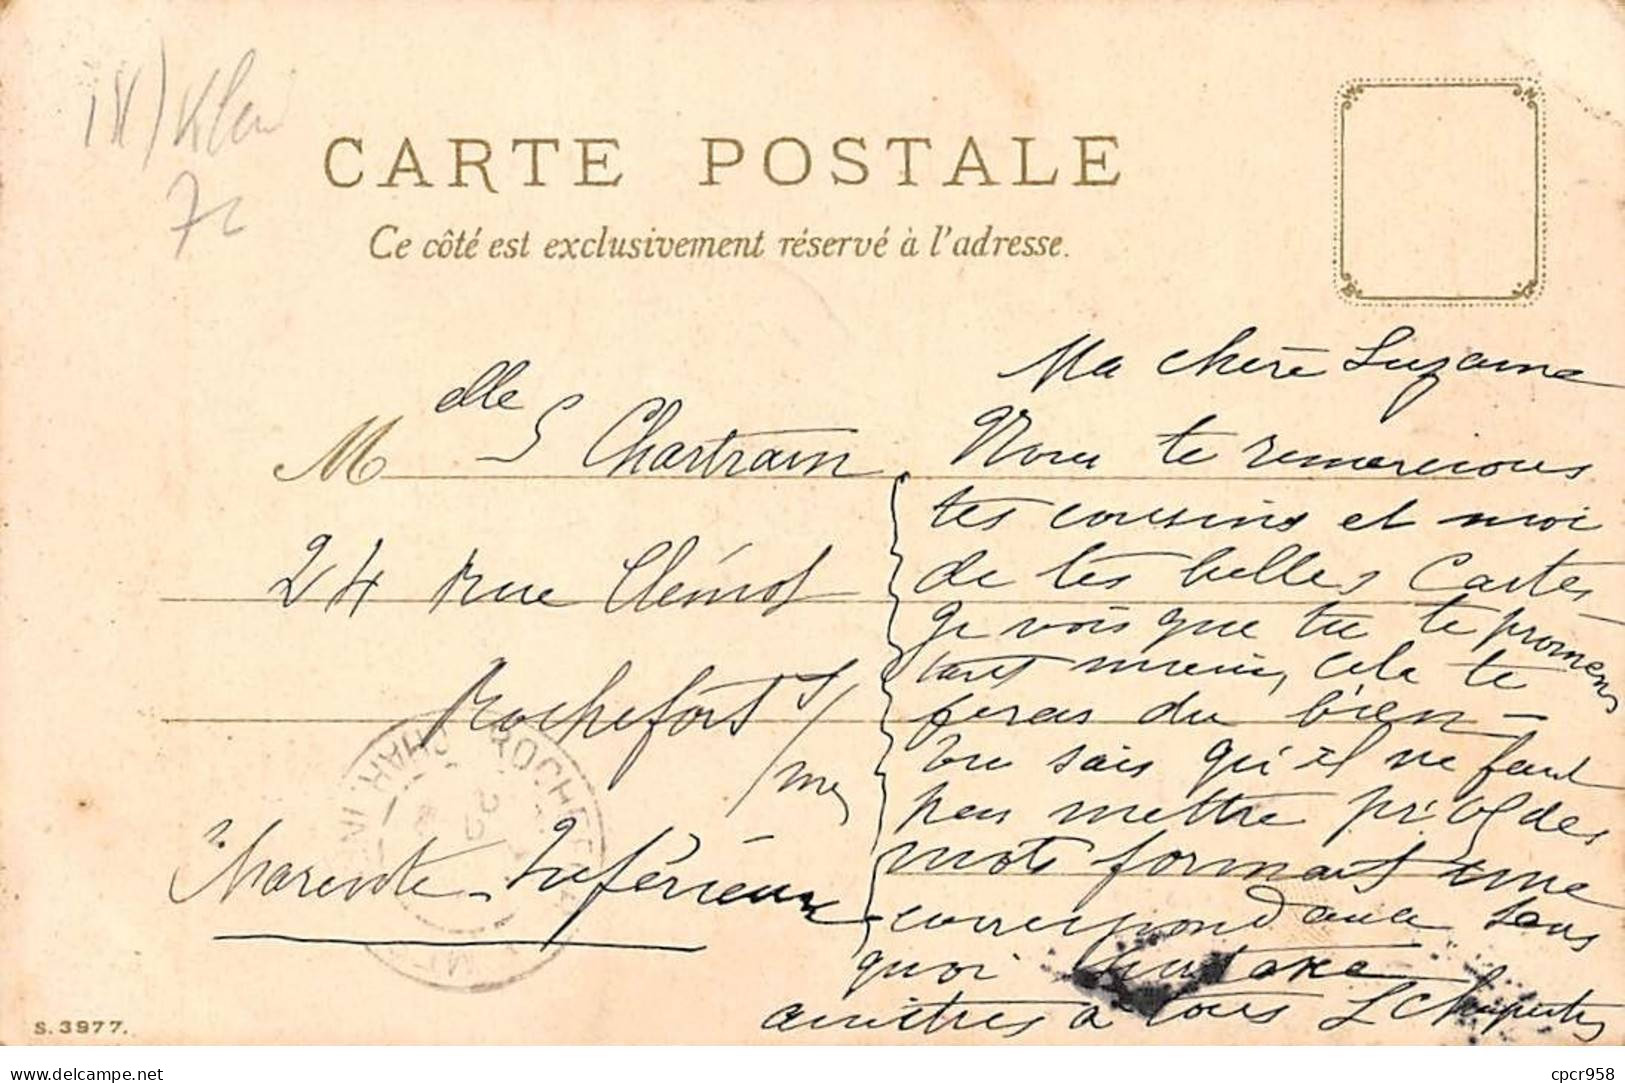 CARTE POSTALE
Ce côté est exclusivement réservé à l'adresse.
Melle S Chartrain
24 Rue Clémot
Rochefort s/
/mer
Charente-Inférieure
Ma chère Suzanne
Nous te remercions
tes cousins et moi
de tes belles Cartes
Je vois que tu te promènes
tant mieux, cela te
feras du bien -
Tu sais qu'il ne faut
pas mettre des
mots formant une
correspondance sans
quoi on taxe
amitiés à tous L
ROCHEFORT
S. 3977.
www.delcampe.net
cpcr958